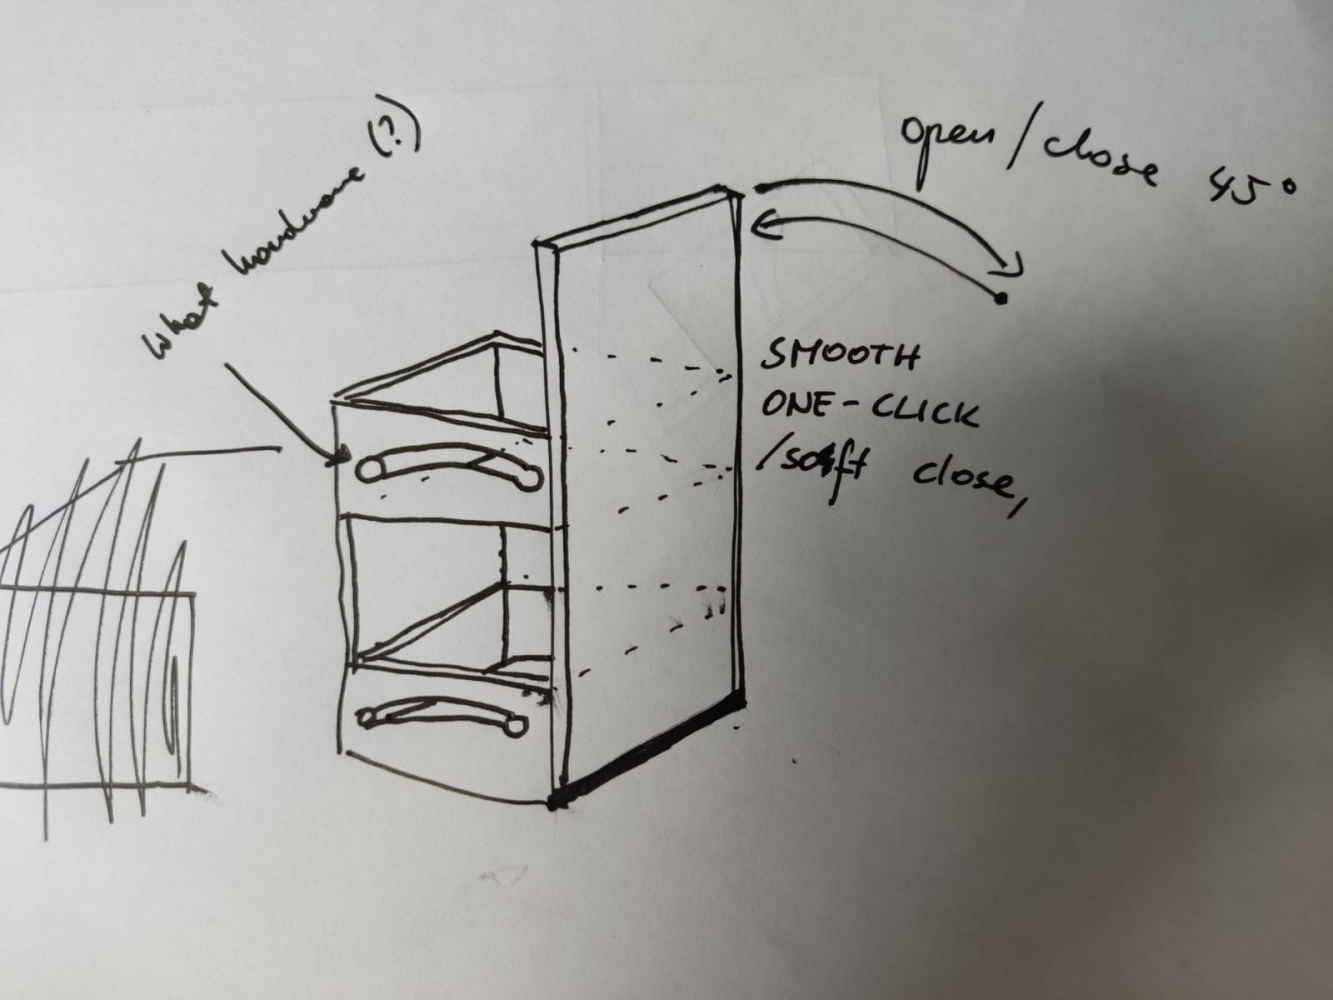 What hardware (?)
open / close 45°
SMOOTH
ONE-CLICK
/soft close,